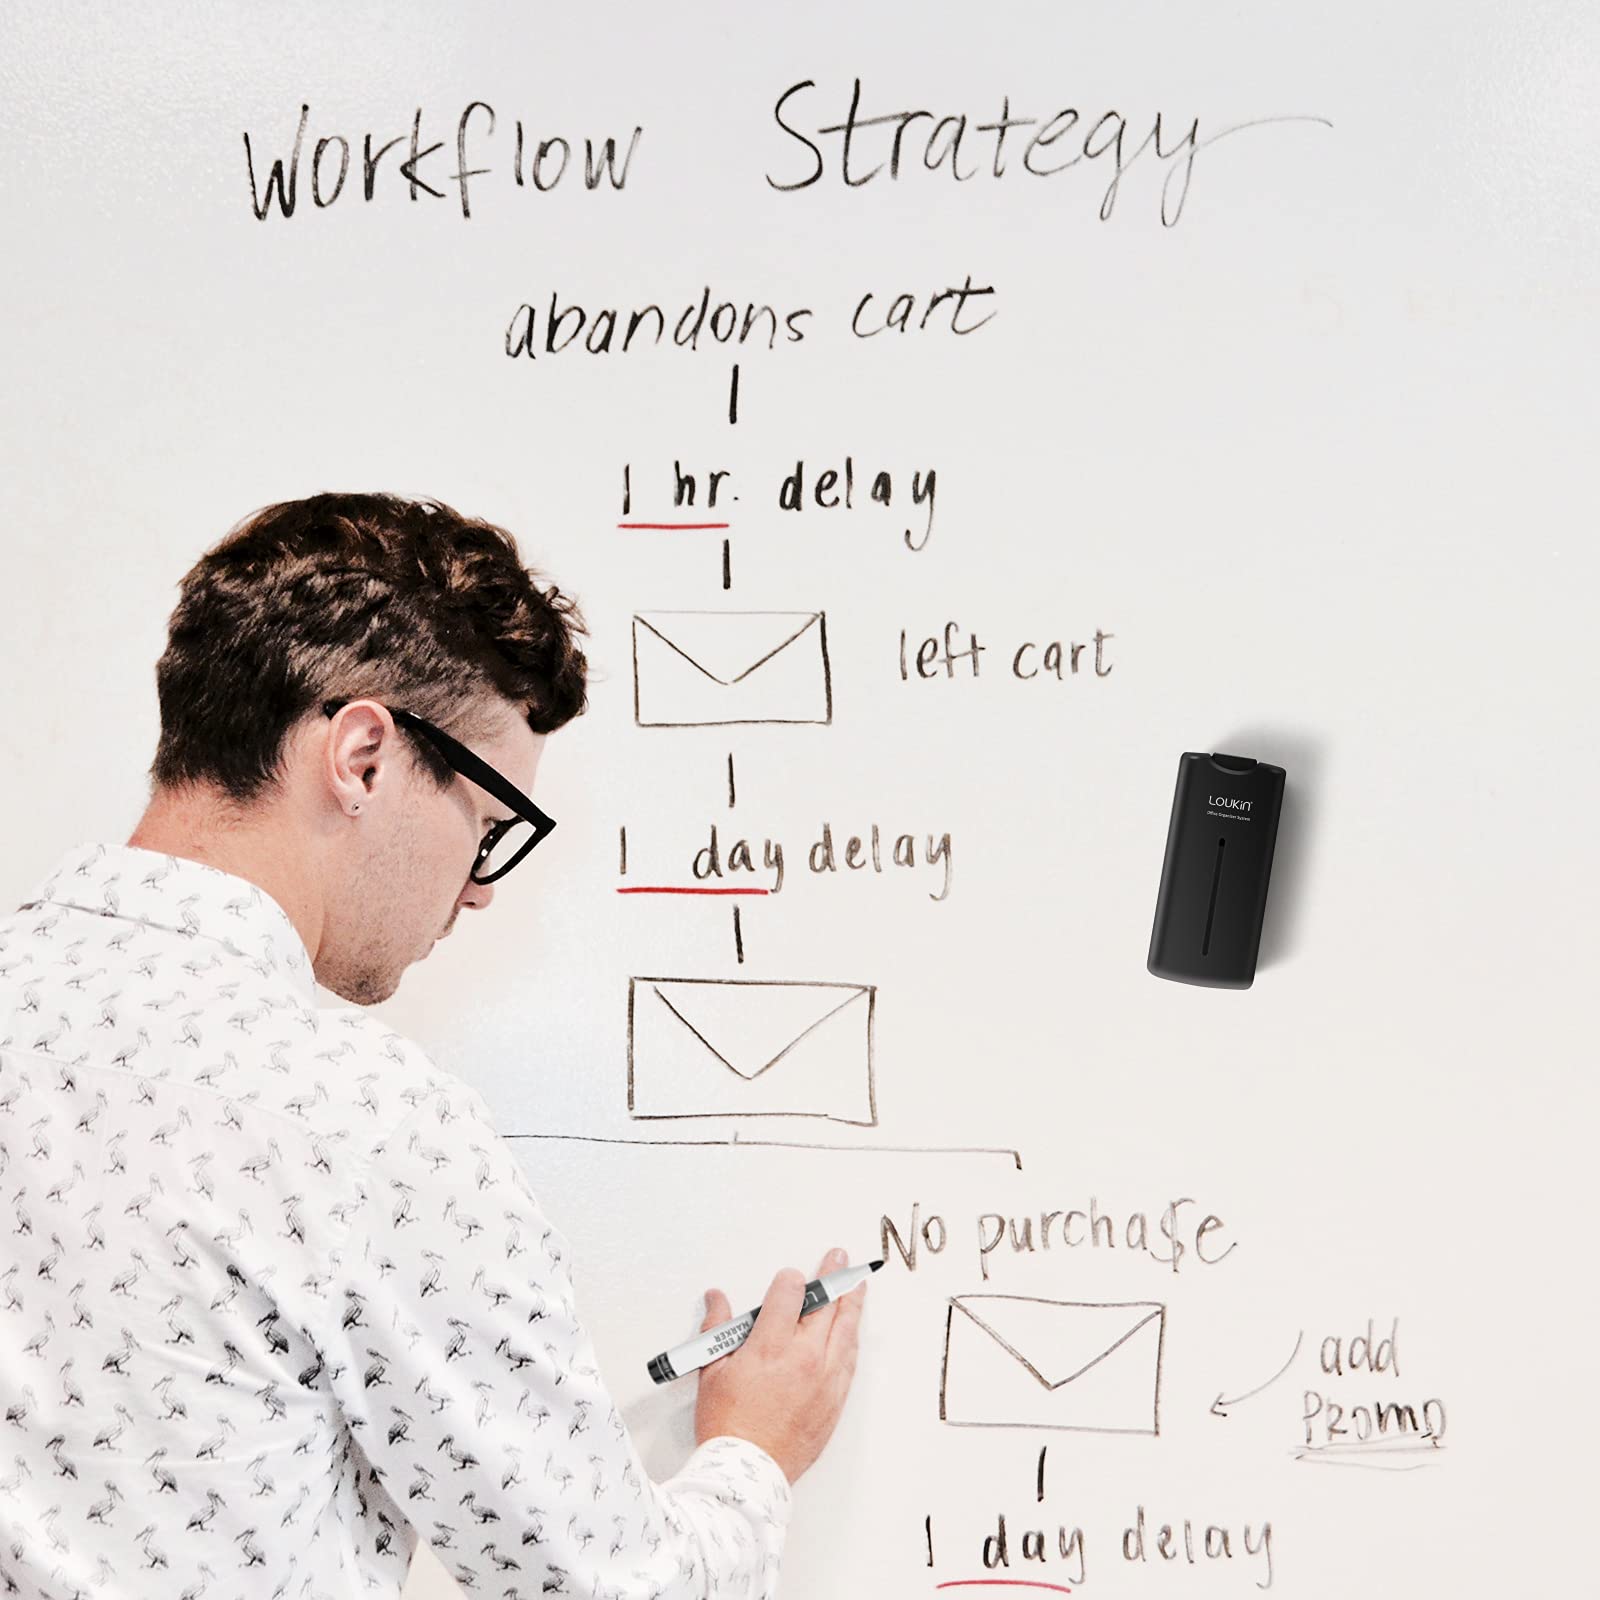 Workflow Strategy
abandons cart
1 hr. delay
left cart
LOUKIN
Office Organizer System
1 day delay
No purcha$e
DRY ERASE
MARKER
add
PROMO
1 day delay